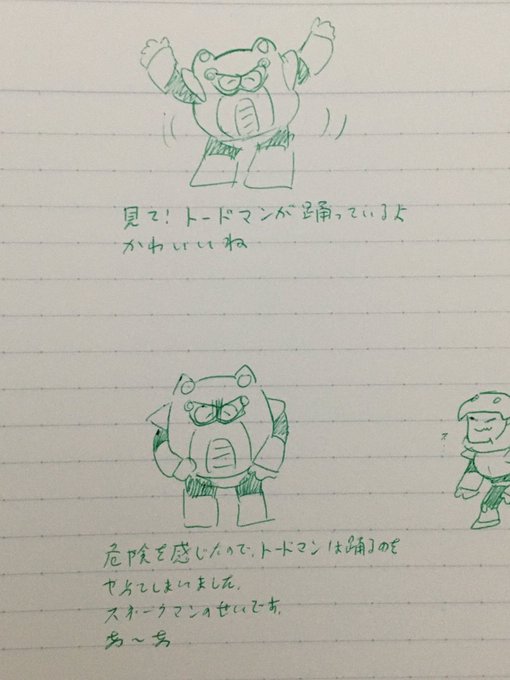 見て！トードマンが踊っているよ
かわいいね
危険を感じたので、トードマンは踊るのを
やめてしまいました。
スネークマンのせいです。
あ〜あ